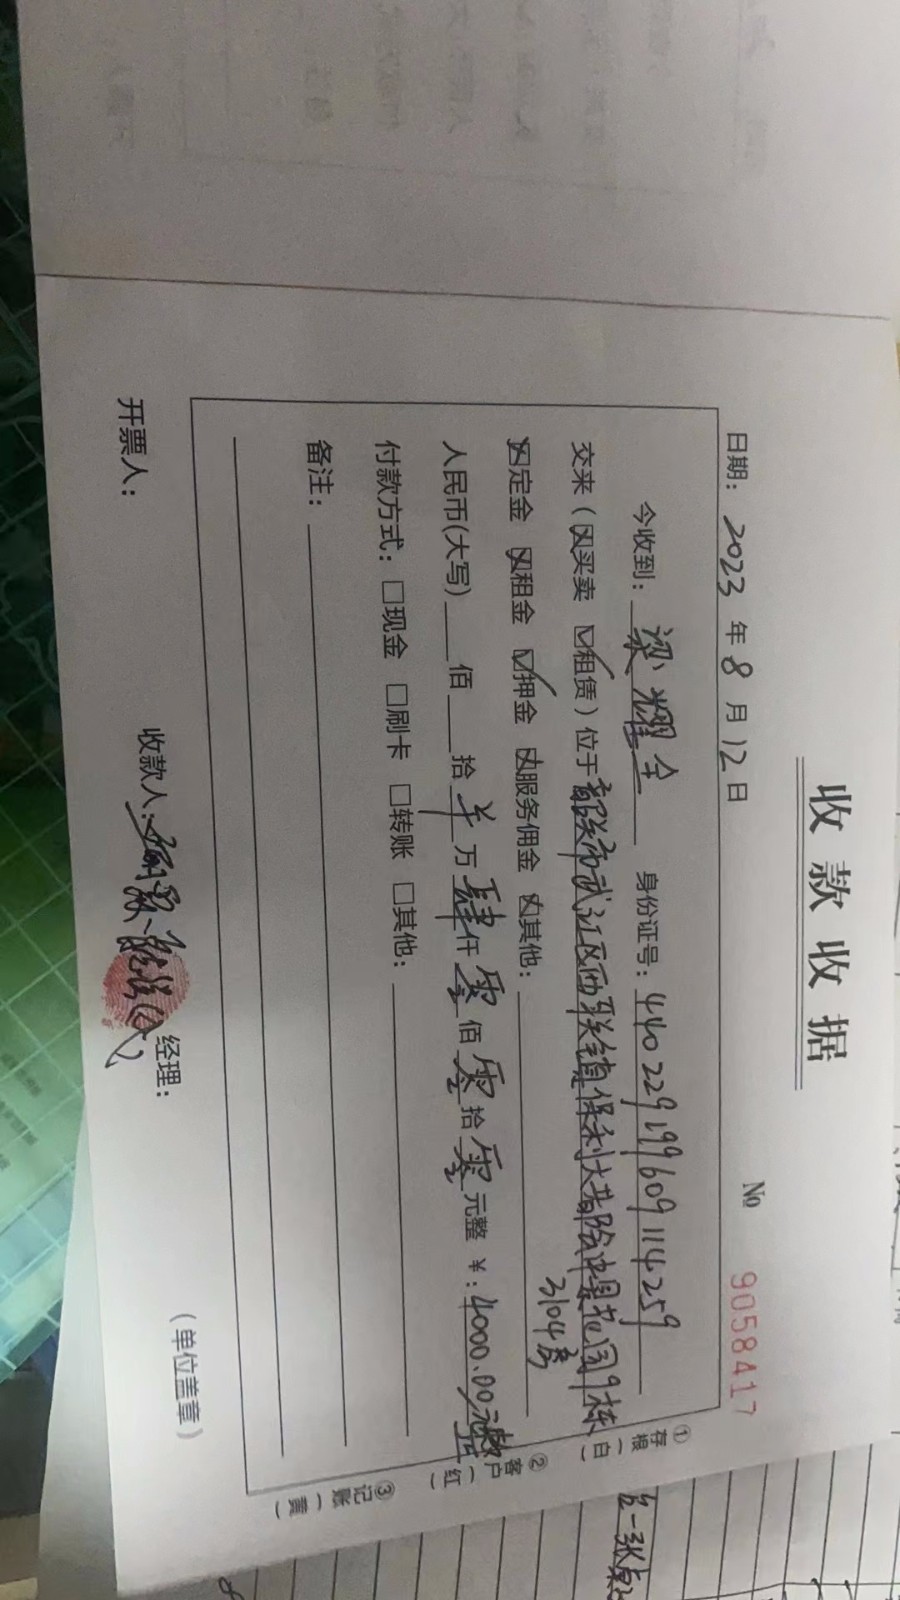 收款收据
No 9058417
日期：2023年8月12日
今收到：梁耀全 身份证号：440229199609114259
交来（☒买卖 ☑租赁）位于韶关市武江区西联镇保利大都会 花园9栋
3104房
☒定金 ☒租金 ☑押金 ☒服务佣金 ☒其他：
人民币(大写)___佰___拾 万肆仟零佰零拾零元整 ¥：4000.00元整
付款方式：□现金 □刷卡 □转账 □其他：
备注：
开票人： 收款人： 经理： （单位盖章）
①存根（白）
②客户（红）
③记账（黄）